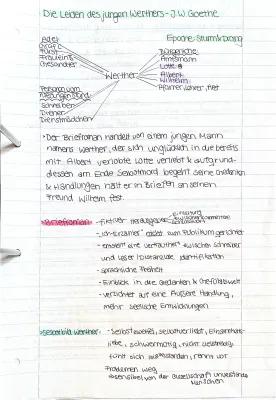 Die Leiden des jungen Werthers - J.W. Goethe
Epoche: Sturm & Drang
Adel
Graf C
Fürst
Fräulein B
Gesandter
Werther
Bürgerliche
Amtsmann
Lotte
Albert
Wilhelm
Pfarrer
Schreiber
Diener
Dienstmädchen
• Der Briefroman handelt von einem jungen Mann
namens Werther, der sich unglücklich in die bereits
mit Albert verlobte Lotte verliebt & aufgrund-
dessen am Ende Selbstmord begeht. Seine Gedanken
& Handlungen hält er in Briefen an seinen
Freund Wilhelm fest.
• Briefroman: - fiktiver Herausgeber
Einleitung
- "Ich-Erzähler" nicht zum Publikum gerichtet
- erzeugt eine Vertrautheit zwischen Schreiber
und Leser
Identifikation
- sprachliche Freiheit
- Einblick in die Gedanken & Gefühlswelt
- verzichtet auf eine äußere Handlung,
mehr seelische Entwicklungen
• Selbstbild Werther:
- Selbstzweifel, selbstverliebt, Einsamkeits-
liebe, schwermütig, nicht
fühlt sich
, rennt vor
Problemen weg
- sensibel von der Gesellschaft
Menschen